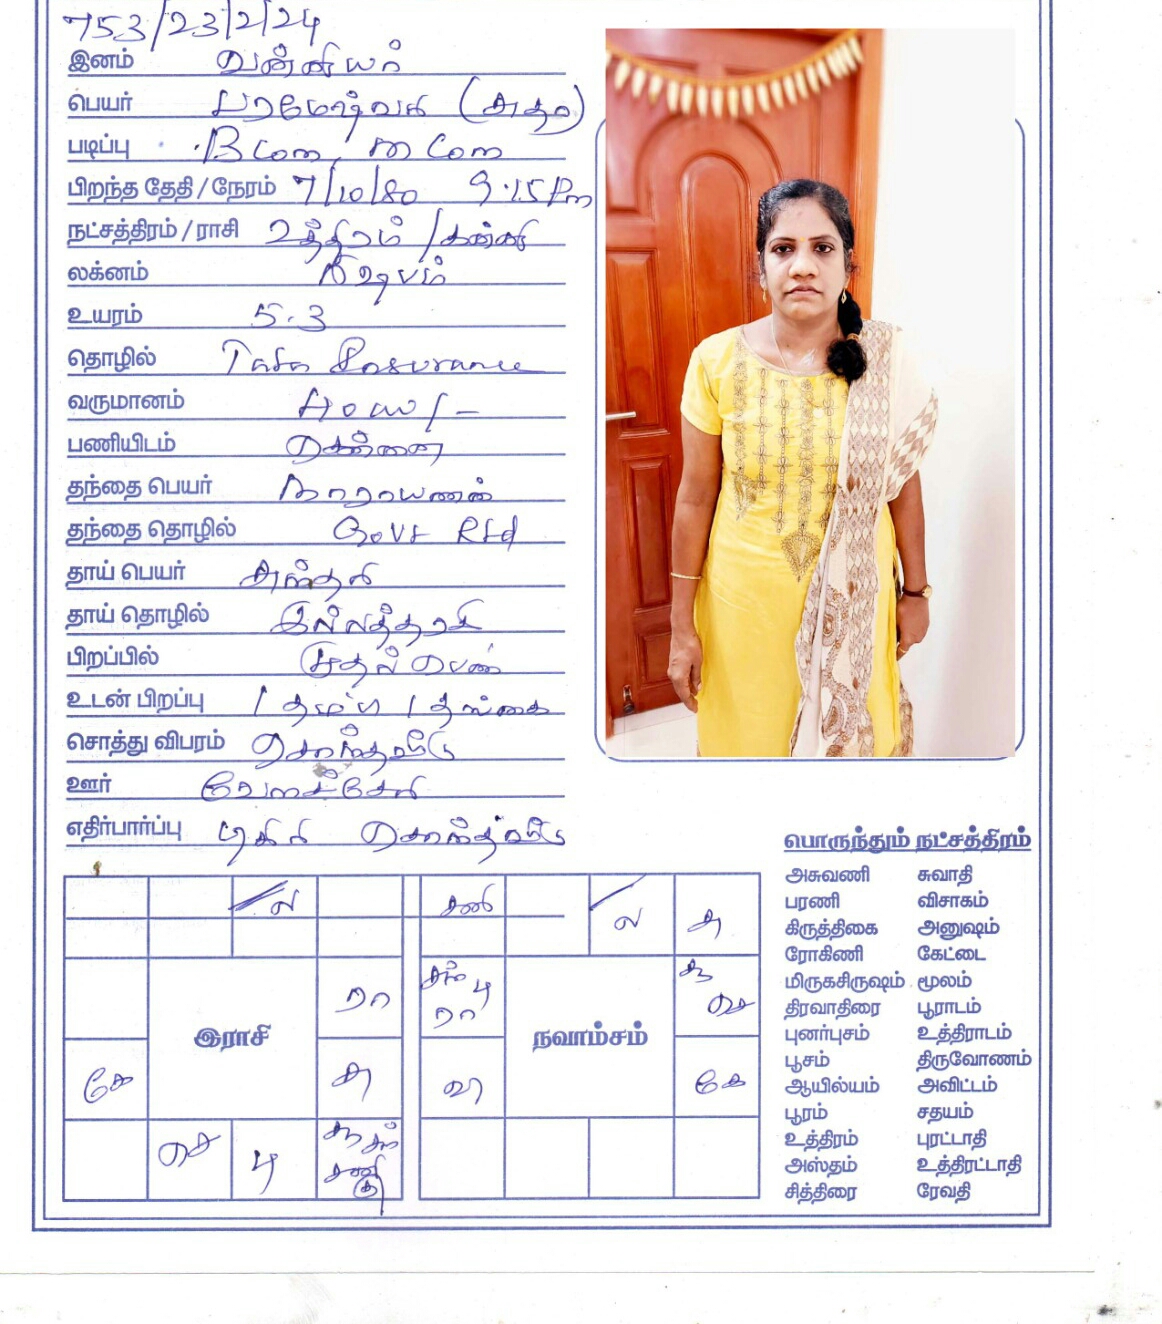 753/23/2/24
இனம் வன்னியர்
பெயர் பரமேஷ்வரி
படிப்பு B Com, M Com
பிறந்த தேதி / நேரம் 7/10/80 9.15 Pm
நட்சத்திரம் / ராசி உத்திரம் / கன்னி
லக்னம் ரிஷபம்
உயரம் 5.3
தொழில் Tata Insurance
வருமானம்
பணியிடம் சென்னை
தந்தை பெயர் நாராயணன்
தந்தை தொழில் Govt Rtd
தாய் பெயர்
தாய் தொழில் இல்லத்தரசி
பிறப்பில் முதல் பெண்
உடன் பிறப்பு 1 தம்பி 1 தங்கை
சொத்து விபரம் சொந்தவீடு
ஊர் வேளச்சேரி
எதிர்பார்ப்பு டிகிரி சொந்தவீடு
ல
ரா
இராசி
கே
சு
செ
சனி
ல
ரா
நவாம்சம்
செ
கே
பொருந்தும் நட்சத்திரம்
அசுவணி சுவாதி
பரணி விசாகம்
கிருத்திகை அனுஷம்
ரோகிணி கேட்டை
மிருகசிருஷம் மூலம்
திரவாதிரை பூராடம்
புனர்புசம் உத்திராடம்
பூசம் திருவோணம்
ஆயில்யம் அவிட்டம்
பூரம் சதயம்
உத்திரம் புரட்டாதி
அஸ்தம் உத்திரட்டாதி
சித்திரை ரேவதி